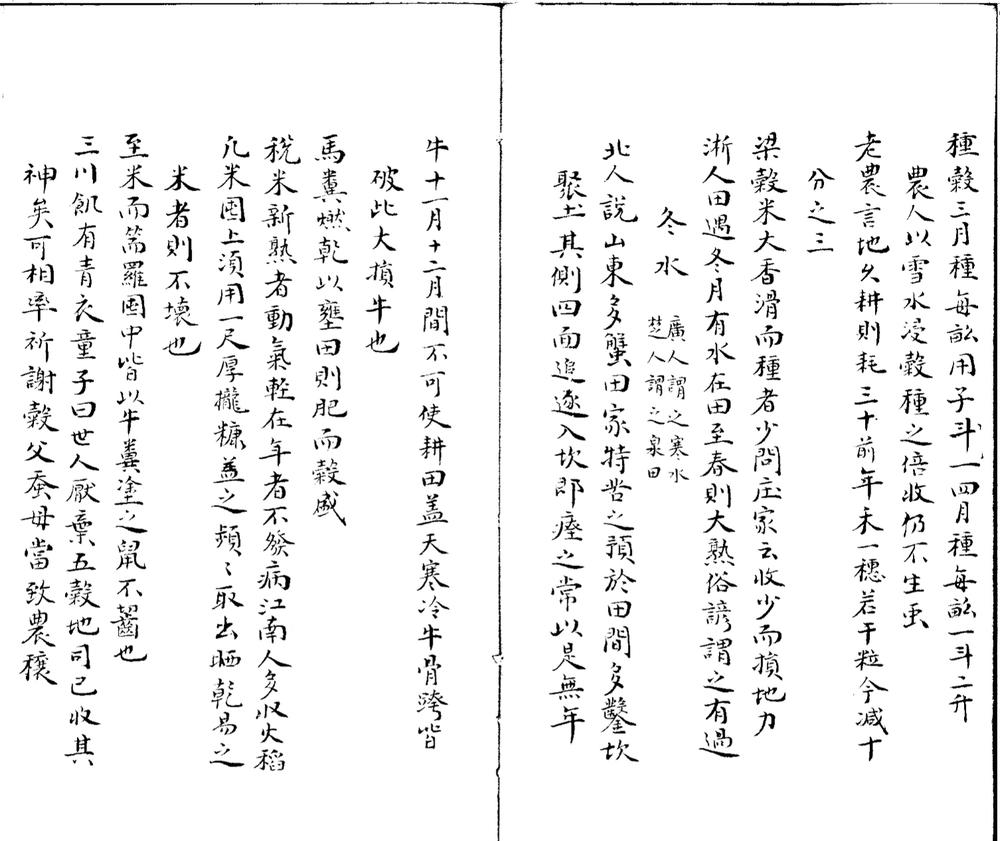 種穀三月種每畝用子斗一四月種每畝一斗二升
農人以雪水浸穀種之倍收仍不生虫
老農言地久耕則耗三十前年禾一穗若干粒今减十
分之三
梁穀米大香滑而種者少問庄家云收少而損地力
淅人田遇冬月有水在田至春則大熟俗諺謂之有過
冬水
廣人謂之寒水
楚人謂之泉田
北人說山東多蟹田家特苦之預於田間多鑿坎
聚土其側四面追逐入坎即瘞之常以是無年
牛十一月十二月間不可使耕田盖天寒冷牛骨跨皆
破此大損牛也
馬糞燃乾以壅田則肥而穀盛
稅米新熟者動氣軽在年者不發病江南人多收火稻
凢米囤上須用一尺厚攏糠盖之頻〻取出晒乾易之
米者則不壊也
至米而篅羅囤中皆以牛糞塗之鼠不齧也
三川飢有青衣童子曰世人厭棄五穀地司已收其
神矣可相率祈謝穀父蚕母當致農穰